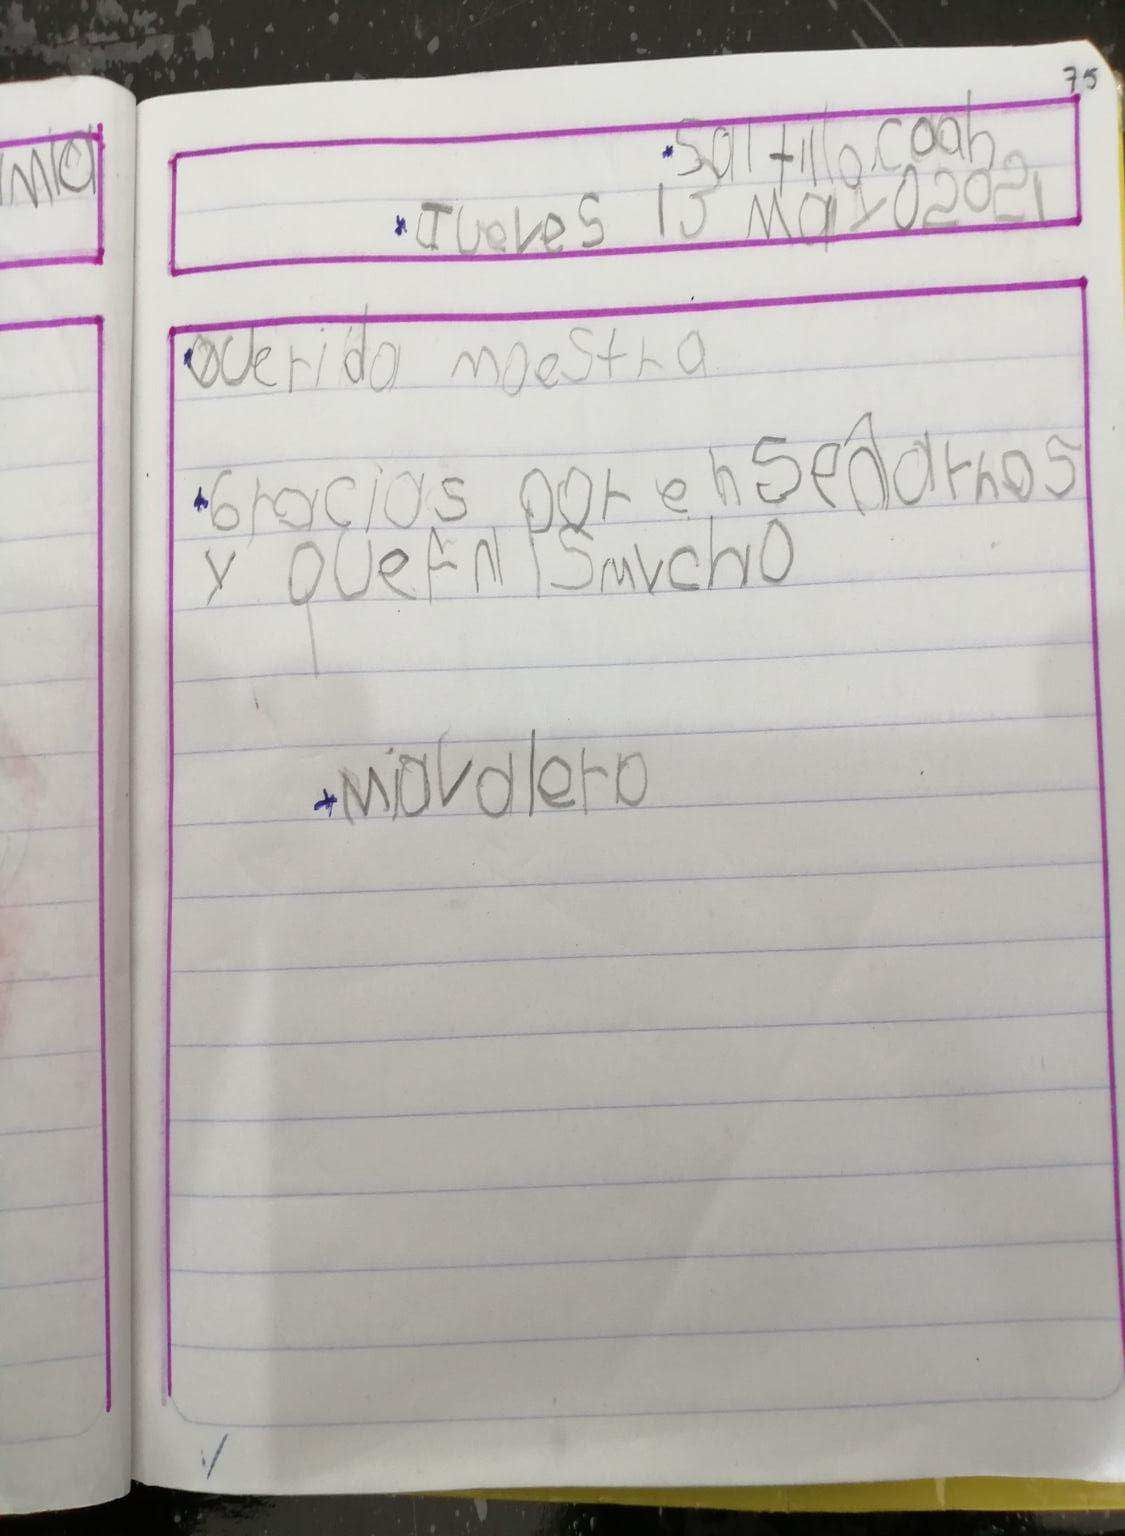 75
mia
Saltillo.coah
Jueves 13 Mayo 2021
Querida maestra
Gracias por enseñarnos
y
mucho
mia valero